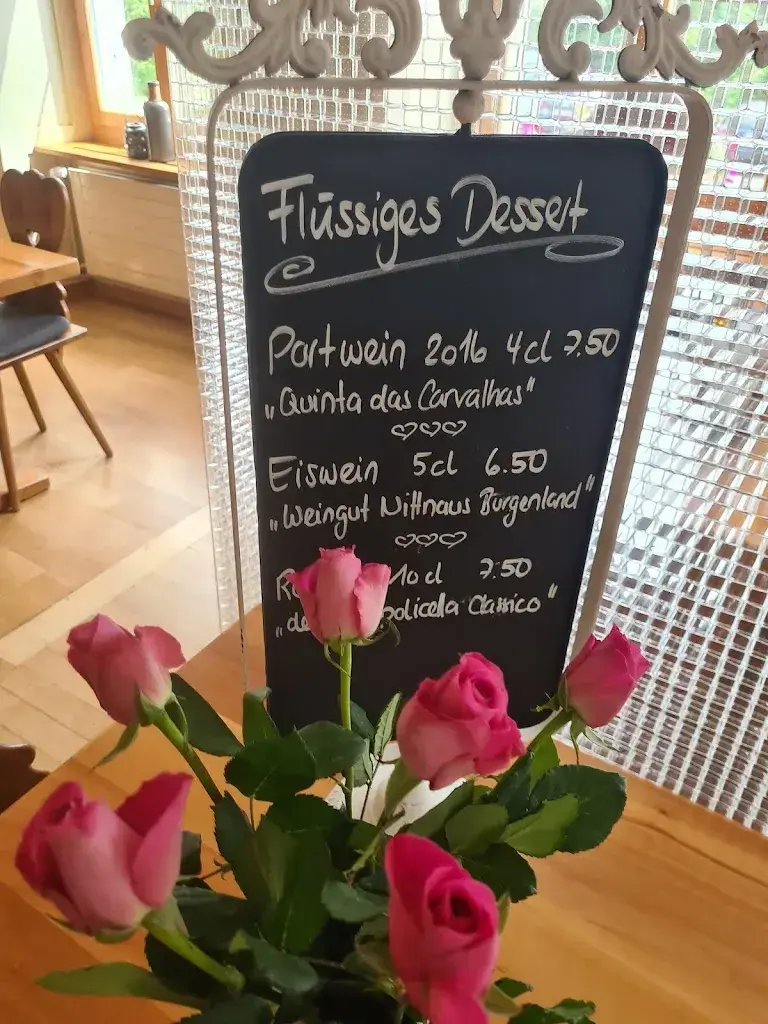 Flüssiges Dessert
Portwein 2016 4cl 7.50
„Quinta das Carvalhas"
Eiswein 5cl 6.50
„Weingut Nittnaus Burgenland"
10cl 7.50
Classico"